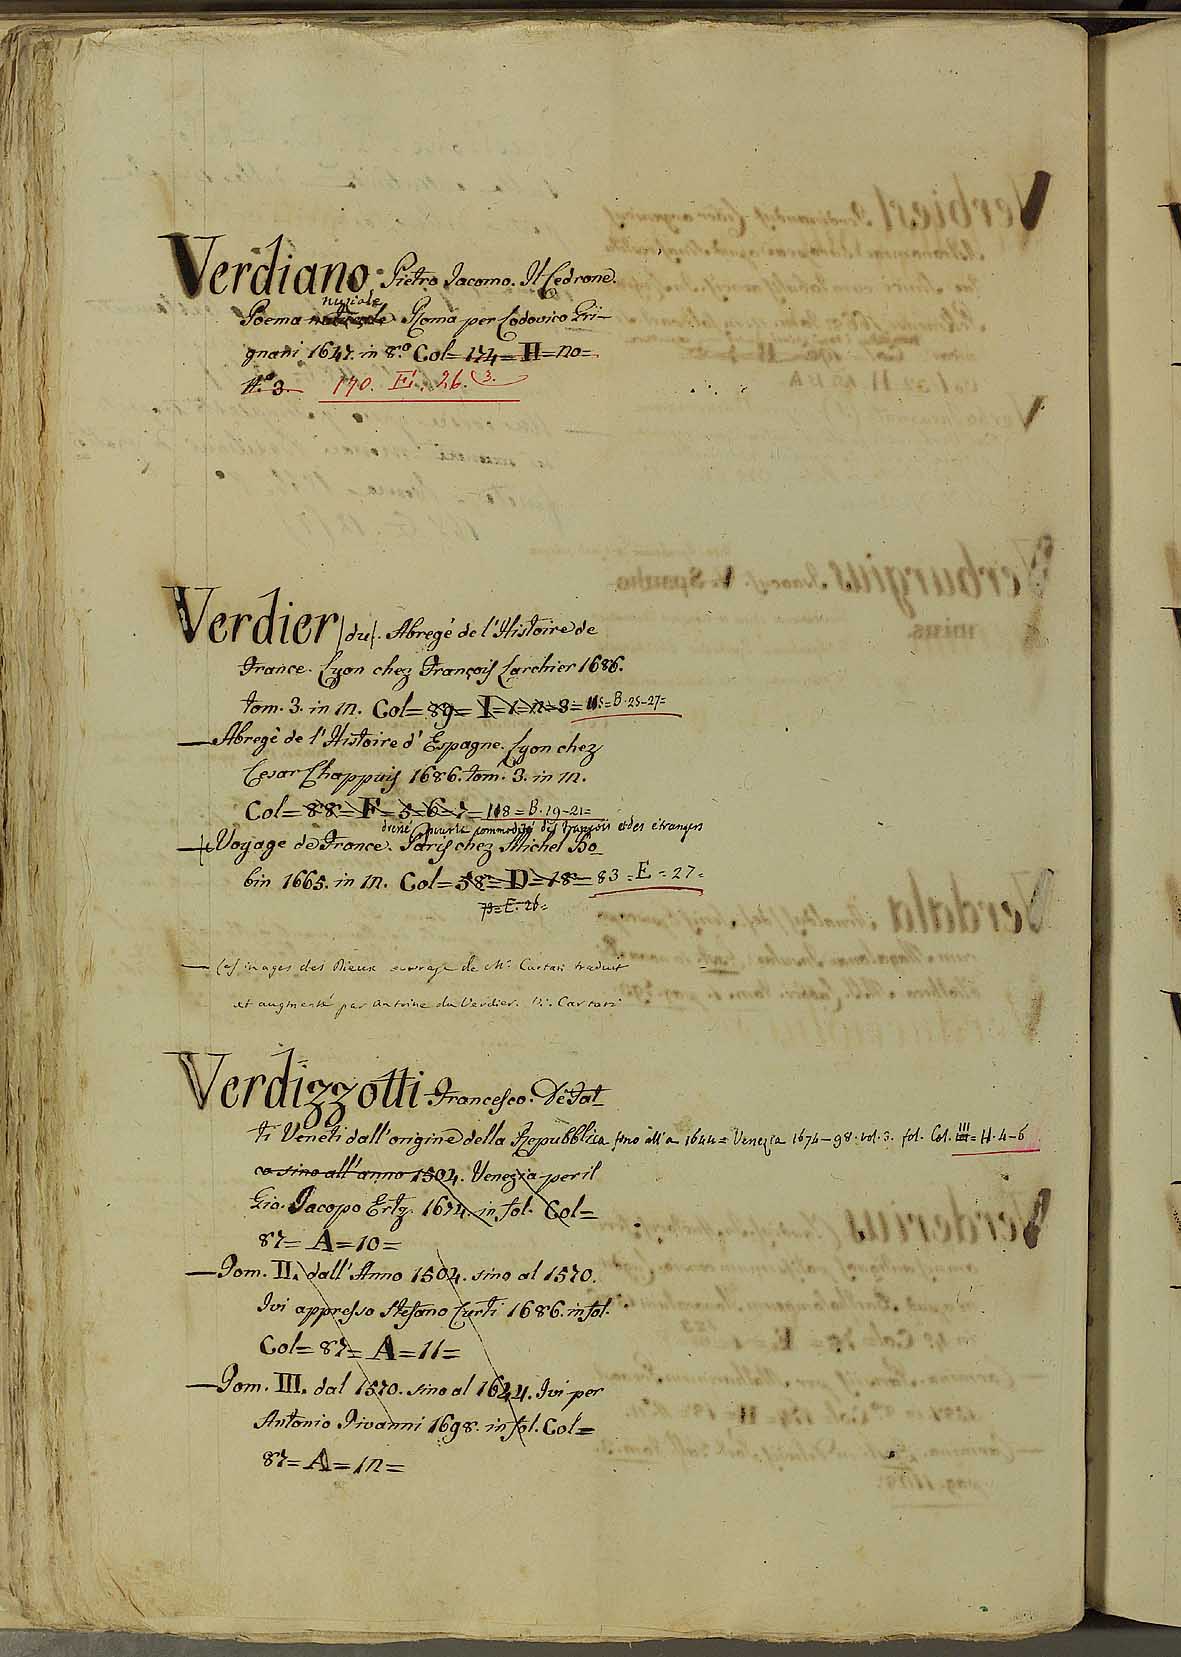 Verdiano. Pietro Jacomo. Il Cedrone.
nuziale
Poema naturale Roma per Lodovico Gri-
gnani 1647. in 8.º Col= 174= H= no=
N.º 3. 170. E. 26. (3.
Verdier (du). Abregé de l'Histoire de
France. Lyon chez François Larchier 1686.
tom. 3. in 12. Col= 89= I= 1= 2= 3= 115= B. 25-27=
— Abregé de l'Histoire d'Espagne. Lyon chez
Cesar Chappuis 1686. tom. 3. in 12.
Col= 88= F= 5= 6= 7= 118= B. 19-21=
dressé pour la commodité des françois et des étrangers
— Voyage de France. Paris chez Michel Bo-
bin 1665. in 12. Col= 58= D= 18= 83= E= 27=
79= E. 26=
— Les images des Dieux ouvrage de Mr. Cartari traduit
et augmenté par Antoine du Verdier. V. Cartari
Verdizzotti Francesco. De' Fat-
ti Veneti dall'origine della Repubblica fino all'a 1644= Venezia 1674-98. vol. 3. fol. Col. III= H. 4-6
ca sino all'anno 1504. Venezia per il
Gio. Jacopo Ertz. 1674. in fol. Col=
87= A= 10=
— Tom. II. dall'Anno 1504. sino al 1570.
Ivi appresso Stefano Curti 1686. in fol.
Col= 87= A= 11=
— Tom. III. dal 1570. sino al 1644. Ivi per
Antonio Tivanni 1698. in fol. Col=
87= A= 12=